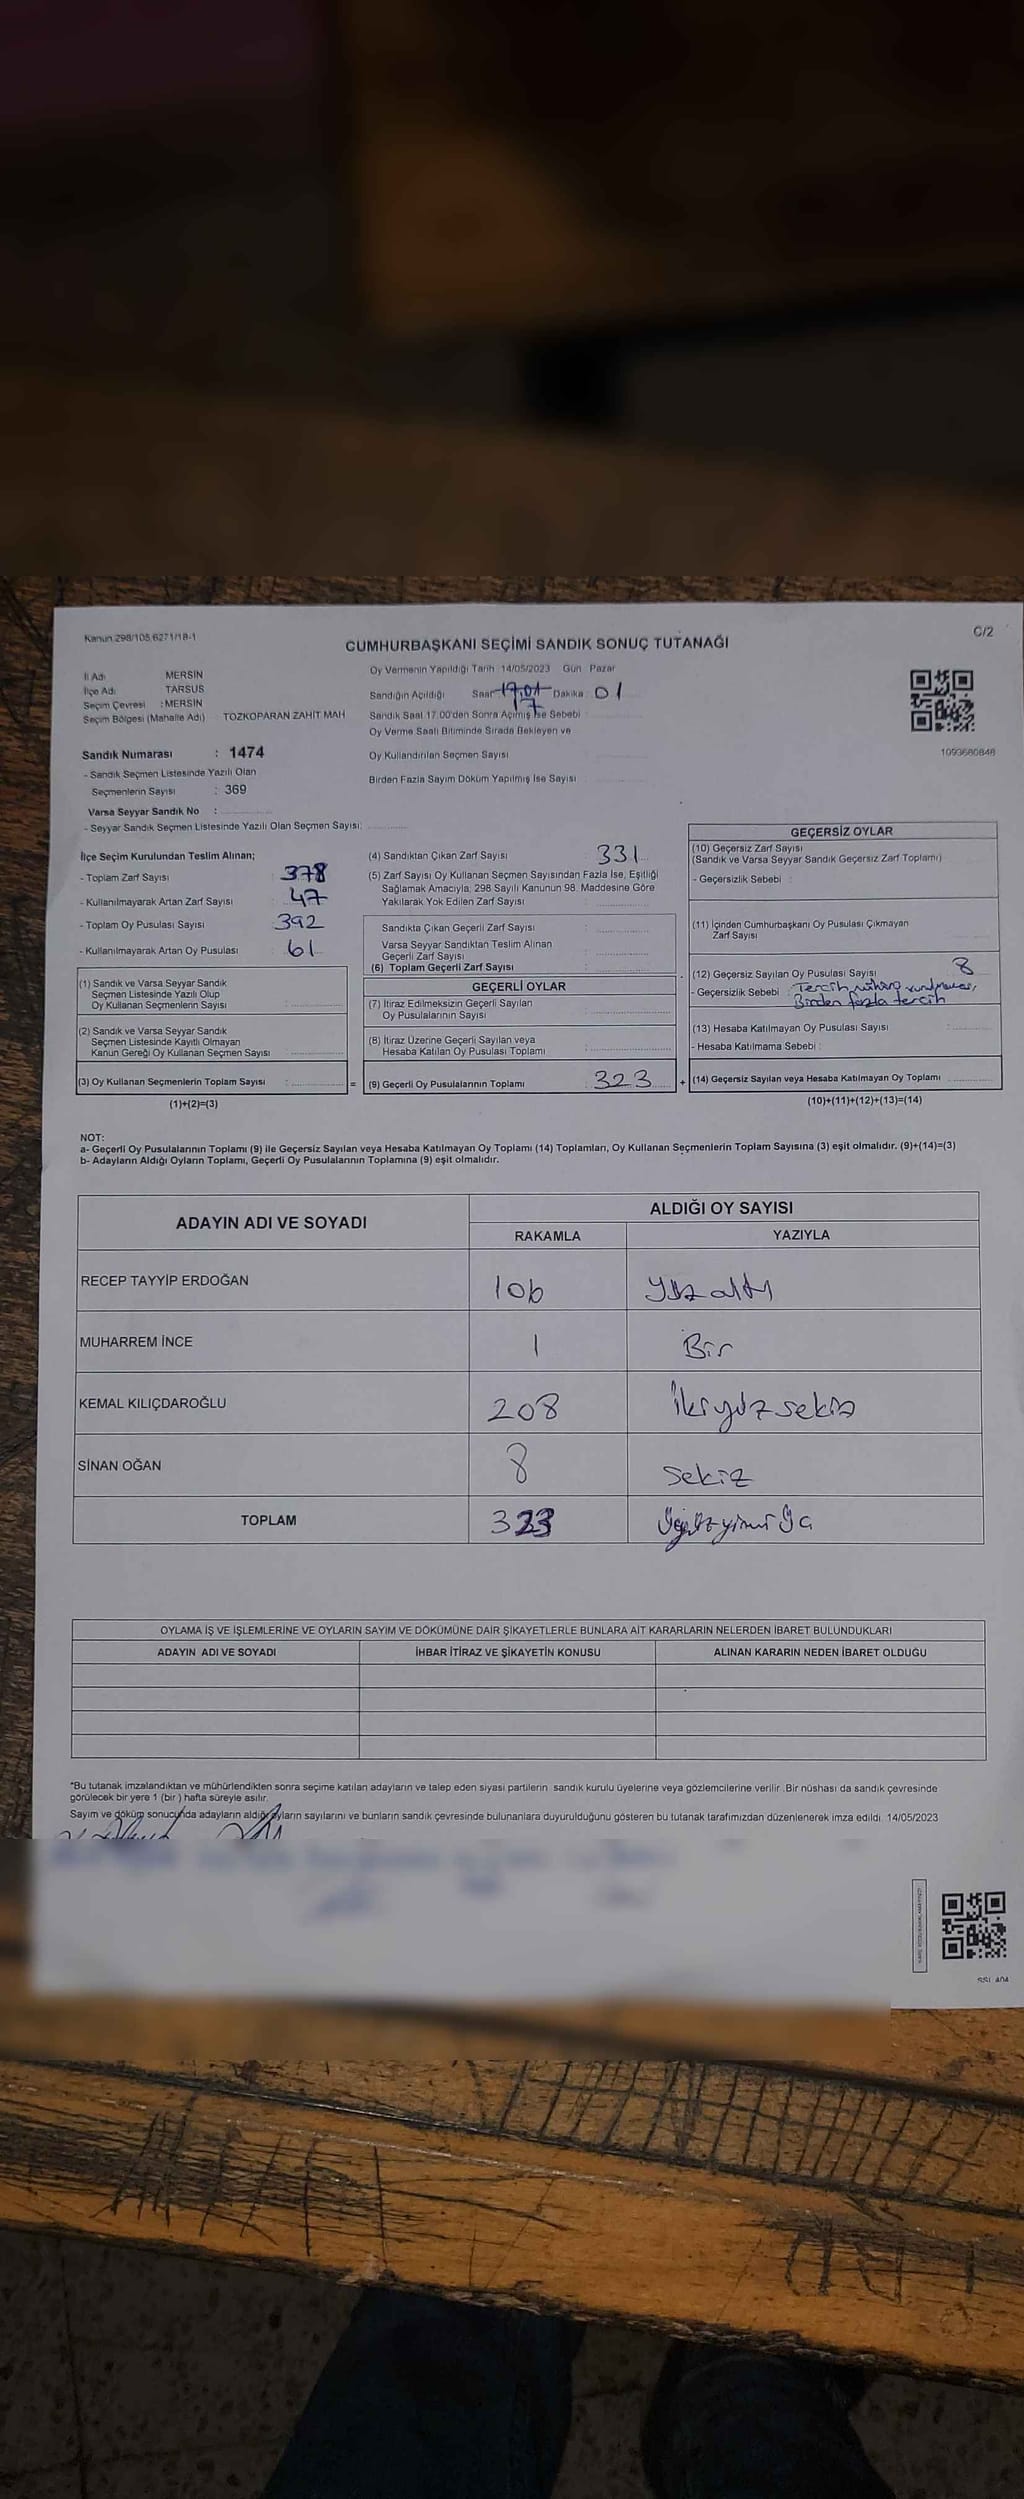 Kanun:298/105,6271/18-1
C/2
CUMHURBAŞKANI SEÇİMİ SANDIK SONUÇ TUTANAĞI
İl Adı MERSİN
İlçe Adı TARSUS
Seçim Çevresi : MERSİN
Seçim Bölgesi (Mahalle Adı) TOZKOPARAN ZAHİT MAH
Oy Vermenin Yapıldığı Tarih :14/05/2023 Gün Pazar
Sandığın Açıldığı Saat 17.01 17 Dakika : 01
Sandık Saat 17.00'den Sonra Açılmış İse Sebebi :
Oy Verme Saati Bitiminde Sırada Bekleyen ve
Oy Kullandırılan Seçmen Sayısı
Birden Fazla Sayım Döküm Yapılmış İse Sayısı
1093680848
Sandık Numarası : 1474
- Sandık Seçmen Listesinde Yazılı Olan
Seçmenlerin Sayısı : 369
Varsa Seyyar Sandık No :
- Seyyar Sandık Seçmen Listesinde Yazılı Olan Seçmen Sayısı:
İlçe Seçim Kurulundan Teslim Alınan;
- Toplam Zarf Sayısı : 378
- Kullanılmayarak Artan Zarf Sayısı : 47
- Toplam Oy Pusulası Sayısı : 392
- Kullanılmayarak Artan Oy Pusulası : 61
(1) Sandık ve Varsa Seyyar Sandık
Seçmen Listesinde Yazılı Olup
Oy Kullanan Seçmenlerin Sayısı :
(2) Sandık ve Varsa Seyyar Sandık
Seçmen Listesinde Kayıtlı Olmayan
Kanun Gereği Oy Kullanan Seçmen Sayısı :
(3) Oy Kullanan Seçmenlerin Toplam Sayısı : =
(1)+(2)=(3)
(4) Sandıktan Çıkan Zarf Sayısı : 331
(5) Zarf Sayısı Oy Kullanan Seçmen Sayısından Fazla İse, Eşitliği
Sağlamak Amacıyla, 298 Sayılı Kanunun 98. Maddesine Göre
Yakılarak Yok Edilen Zarf Sayısı :
Sandıkta Çıkan Geçerli Zarf Sayısı :
Varsa Seyyar Sandıktan Teslim Alınan
Geçerli Zarf Sayısı :
(6) Toplam Geçerli Zarf Sayısı :
GEÇERLİ OYLAR
(7) İtiraz Edilmeksizin Geçerli Sayılan
Oy Pusulalarının Sayısı :
(8) İtiraz Üzerine Geçerli Sayılan veya
Hesaba Katılan Oy Pusulası Toplamı :
(9) Geçerli Oy Pusulalarının Toplamı : 323 +
GEÇERSİZ OYLAR
(10) Geçersiz Zarf Sayısı
(Sandık ve Varsa Seyyar Sandık Geçersiz Zarf Toplamı)
- Geçersizlik Sebebi :
(11) İçinden Cumhurbaşkanı Oy Pusulası Çıkmayan
Zarf Sayısı
(12) Geçersiz Sayılan Oy Pusulası Sayısı 8
- Geçersizlik Sebebi : Tercih mührü
Birden fazla tercih
(13) Hesaba Katılmayan Oy Pusulası Sayısı :
- Hesaba Katılmama Sebebi :
(14) Geçersiz Sayılan veya Hesaba Katılmayan Oy Toplamı
(10)+(11)+(12)+(13)=(14)
NOT:
a- Geçerli Oy Pusulalarının Toplamı (9) ile Geçersiz Sayılan veya Hesaba Katılmayan Oy Toplamı (14) Toplamları, Oy Kullanan Seçmenlerin Toplam Sayısına (3) eşit olmalıdır. (9)+(14)=(3)
b- Adayların Aldığı Oyların Toplamı, Geçerli Oy Pusulalarının Toplamına (9) eşit olmalıdır.
ADAYIN ADI VE SOYADI ALDIĞI OY SAYISI
RAKAMLA YAZIYLA
RECEP TAYYİP ERDOĞAN 106 Yüz altı
MUHARREM İNCE 1 Bir
KEMAL KILIÇDAROĞLU 208 İkiyüz sekiz
SİNAN OĞAN 8 Sekiz
TOPLAM 323 Üçyüz yirmi Üç
OYLAMA İŞ VE İŞLEMLERİNE VE OYLARIN SAYIM VE DÖKÜMÜNE DAİR ŞİKAYETLERLE BUNLARA AİT KARARLARIN NELERDEN İBARET BULUNDUKLARI
ADAYIN ADI VE SOYADI İHBAR İTİRAZ VE ŞİKAYETİN KONUSU ALINAN KARARIN NEDEN İBARET OLDUĞU
*Bu tutanak imzalandıktan ve mühürlendikten sonra seçime katılan adayların ve talep eden siyasi partilerin sandık kurulu üyelerine veya gözlemcilerine verilir. Bir nüshası da sandık çevresinde
görülecek bir yere 1 (bir) hafta süreyle asılır.
Sayım ve döküm sonucunda adayların aldığı oyların sayılarını ve bunların sandık çevresinde bulunanlara duyurulduğunu gösteren bu tutanak tarafımızdan düzenlenerek imza edildi. 14/05/2023
SSI 404